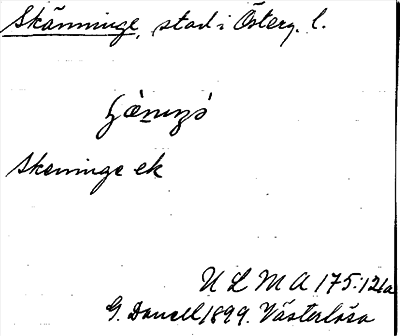 Skänninge, stad i Österg. l.
Skeninge ek
U L M A 175:12a
G. Danell 1899. Västerlösa